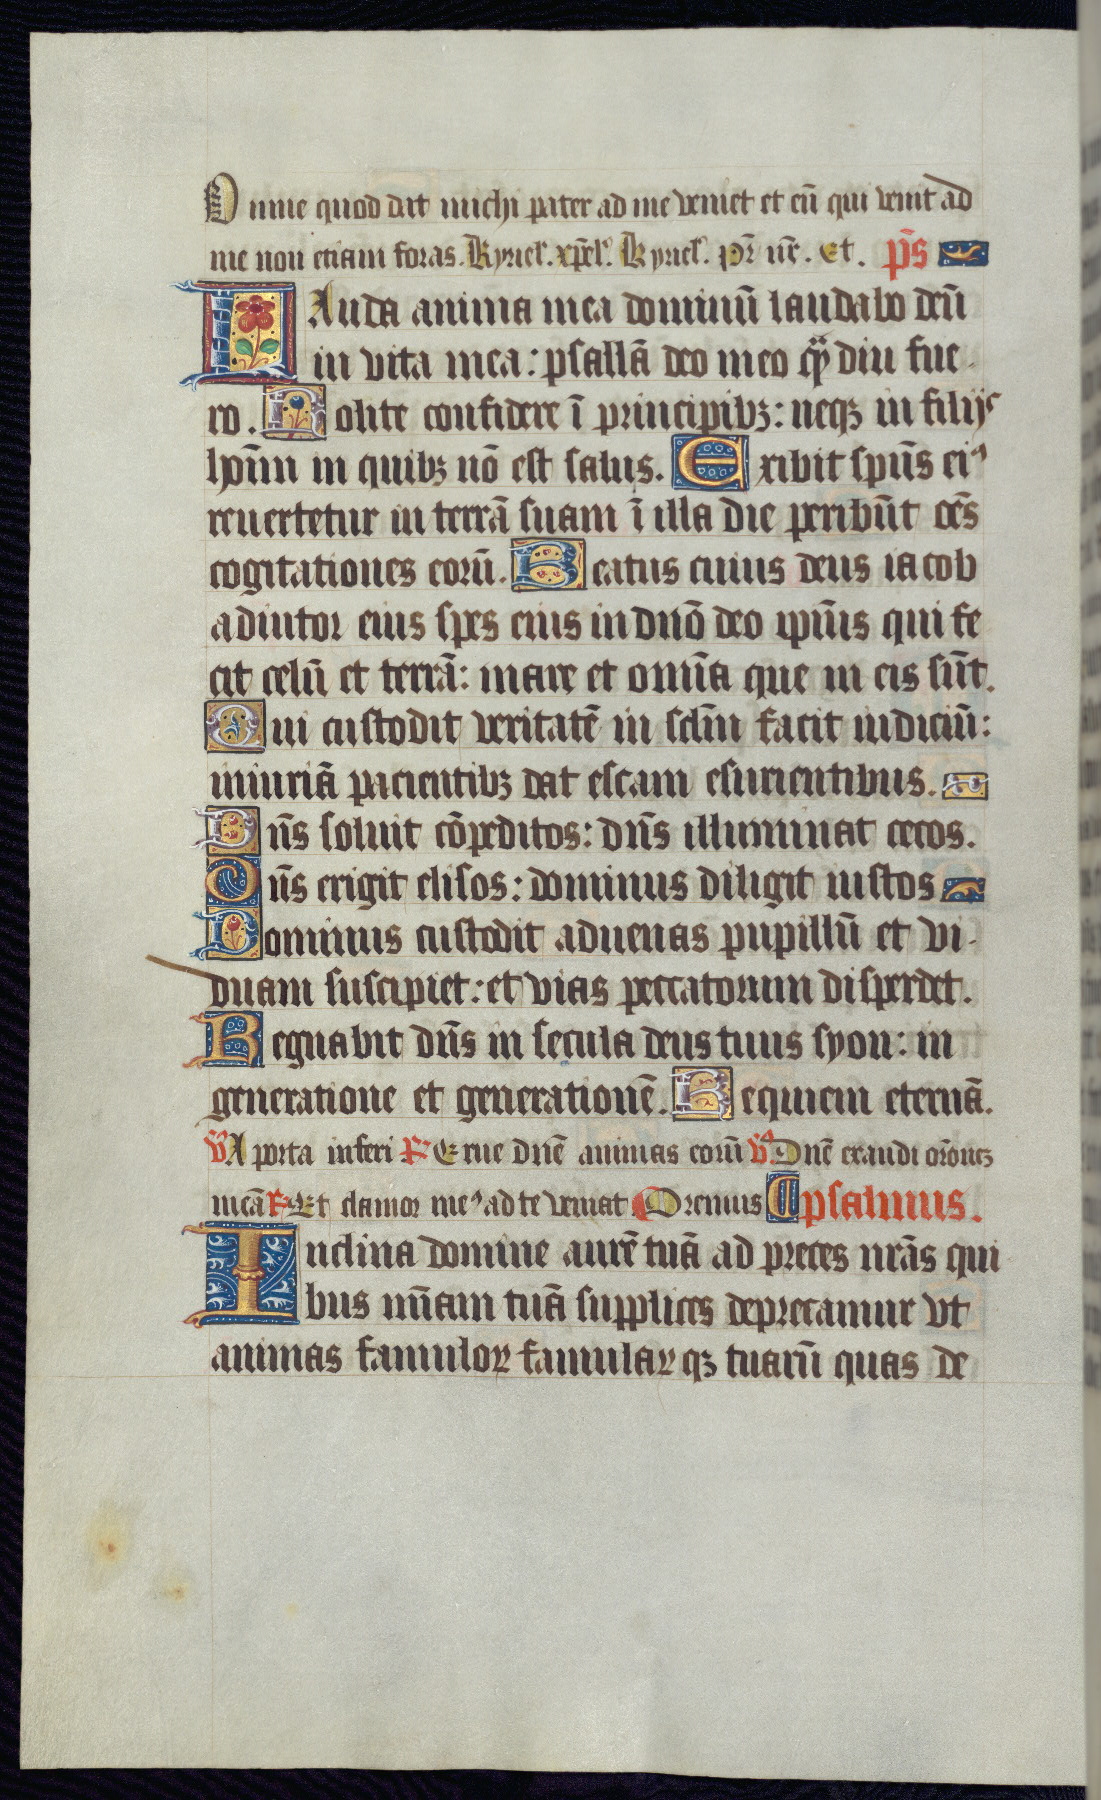 Omne quod dat michi pater ad me veniet et eū qui venit ad
me non eciam foras. Kyriel'. xp̄el'. Kyriel'. pr̄ nr̄. Et. p̄s
LAuda anima mea dominū laudabo deū
in vita mea: psallā deo meo qͣ̄diu fue
ro. Nolite confidere ī principibꝫ: neqꝫ in filijs
hoīm in quibꝫ nō est salus. Exibit spūs eiꝰ
reuertetur in terrā suam ī illa die peribūt oēs
cogitationes eorū. Beatus cuius deus iacob
adiutor eius spes eius in dnō deo ipīus qui fe
cit celū et terrā: mare et omīa que in eis sūt.
Qui custodit veritatē in sclm̄ facit iudiciū:
iniuriā pacientibꝫ dat escam esurientibus.
Dn̄s soluit cōpeditos: dn̄s illuminat cecos.
Dn̄s erigit elisos: dominus diligit iustos
Dominus custodit aduenas pupillū et vi
duam suscipiet: et vias peccatorum disperdet.
Regnabit dn̄s in secula deus tuus syon: in
generatione et generationē. Requiem eternā.
V̄ A porta inferi R̄ Erue dnē animas eorū V̄ Dnē exaudi orōnez
meā R̄ Et clamor meꝰ ad te veniat Oremus psalmus.
Inclina domine aurē tuā ad preces nrās qui
bus mīam tuā supplices deprecamur vt
animas famuloꝝ famulaꝝqꝫ tuarū quas de